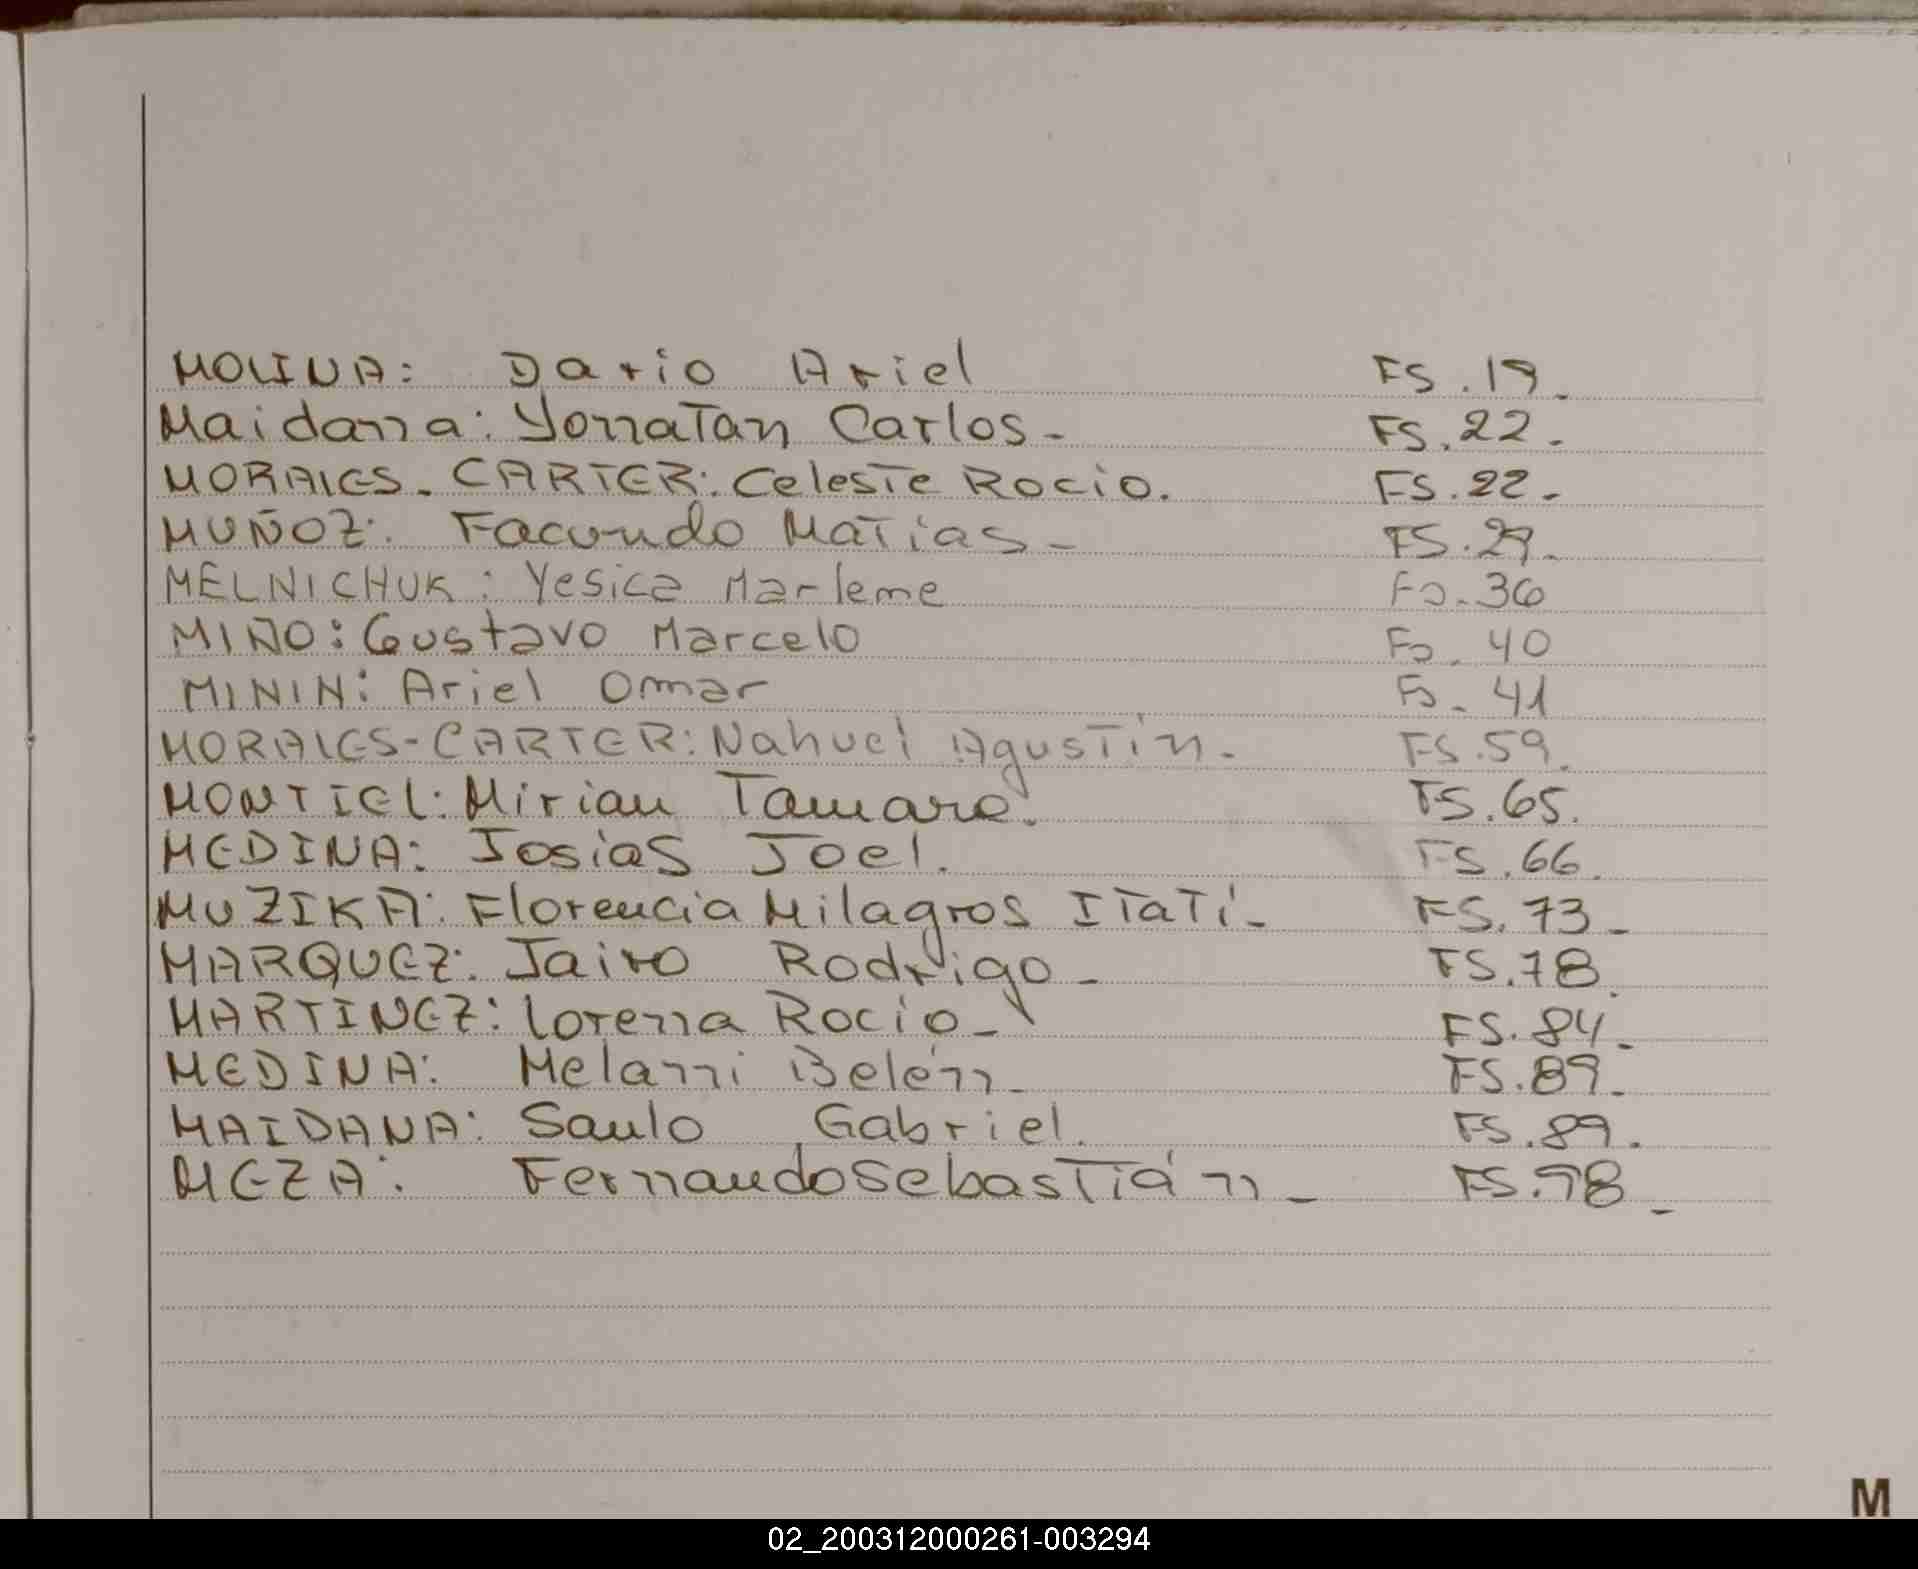 MOLINA: Dario Ariel FS.19.
Maidana: Yonatan Carlos- FS.22.
MORALES-CARTER: Celeste Rocio. FS.22-
MUÑOZ: Facundo Matias- FS.29.
MELNICHUK: Yesica Marleme Fo.36
MIÑO: Gustavo Marcelo Fo. 40
MININ: Ariel Omar Fo. 41
MORALES-CARTER: Nahuel Agustín. FS.59.
MONTIEL: Mirian Tamara. FS.65.
MEDINA: Josias Joel. FS.66.
MUZIKA: Florencia Milagros Itatí- FS.73-
MARQUEZ: Jairo Rodrigo- FS.78.
MARTINEZ: Lorena Rocio- FS.84.
MEDINA: Melanni Belén- FS.89.
MAIDANA: Saulo Gabriel. FS.89.
MEZA: Fernando Sebastián- FS.98-
M
02_200312000261-003294